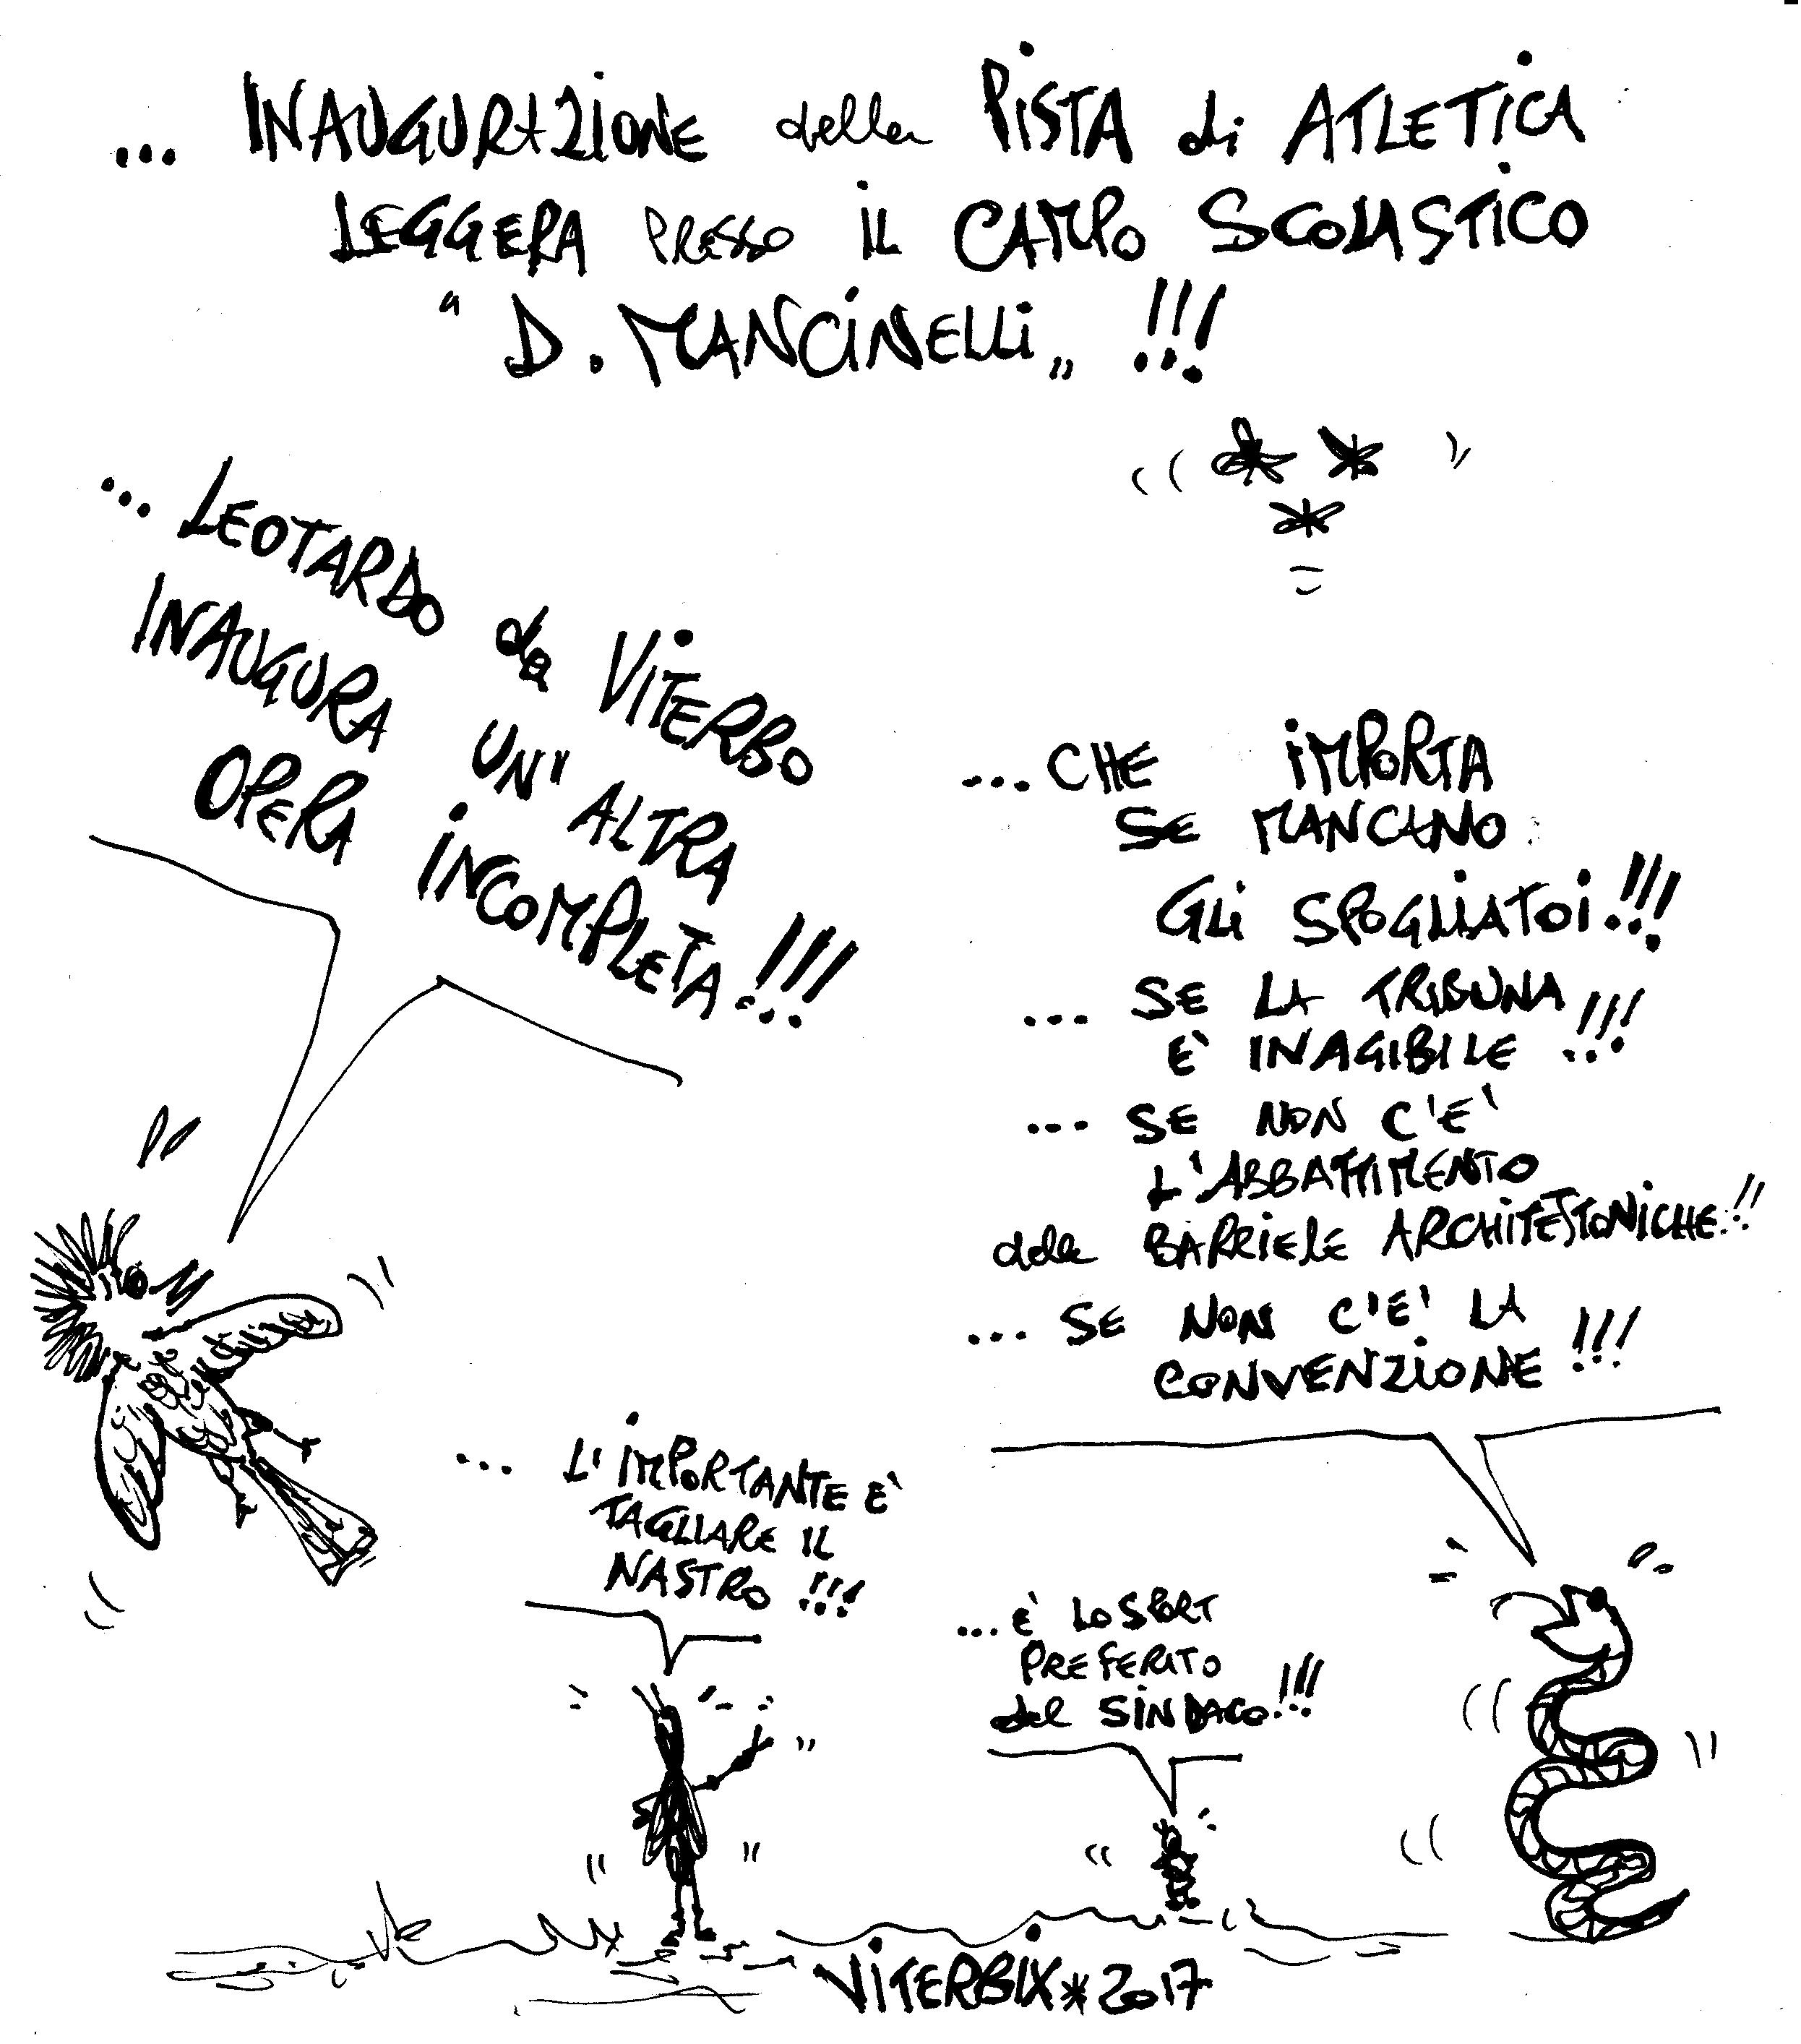 ... INAUGURAZIONE della PISTA di ATLETICA
LEGGERA PRESSO IL CAMPO SCOLASTICO
"D. MANCINELLI" !!!
... LEOTARDO da VITERBO
INAUGURA UN'ALTRA
OPERA INCOMPLETA!!!
... CHE IMPORTA
SE MANCANO
GLI SPOGLIATOI!!!
... SE LA TRIBUNA
E' INAGIBILE !!!
... SE NON C'E'
L'ABBATTIMENTO
delle BARRIERE ARCHITETTONICHE!!
... SE NON C'E' LA
CONVENZIONE !!!
... L'IMPORTANTE E'
TAGLIARE IL
NASTRO !!!
... E' LO SPORT
PREFERITO
del SINDACO!!!
VITERBIX*2017